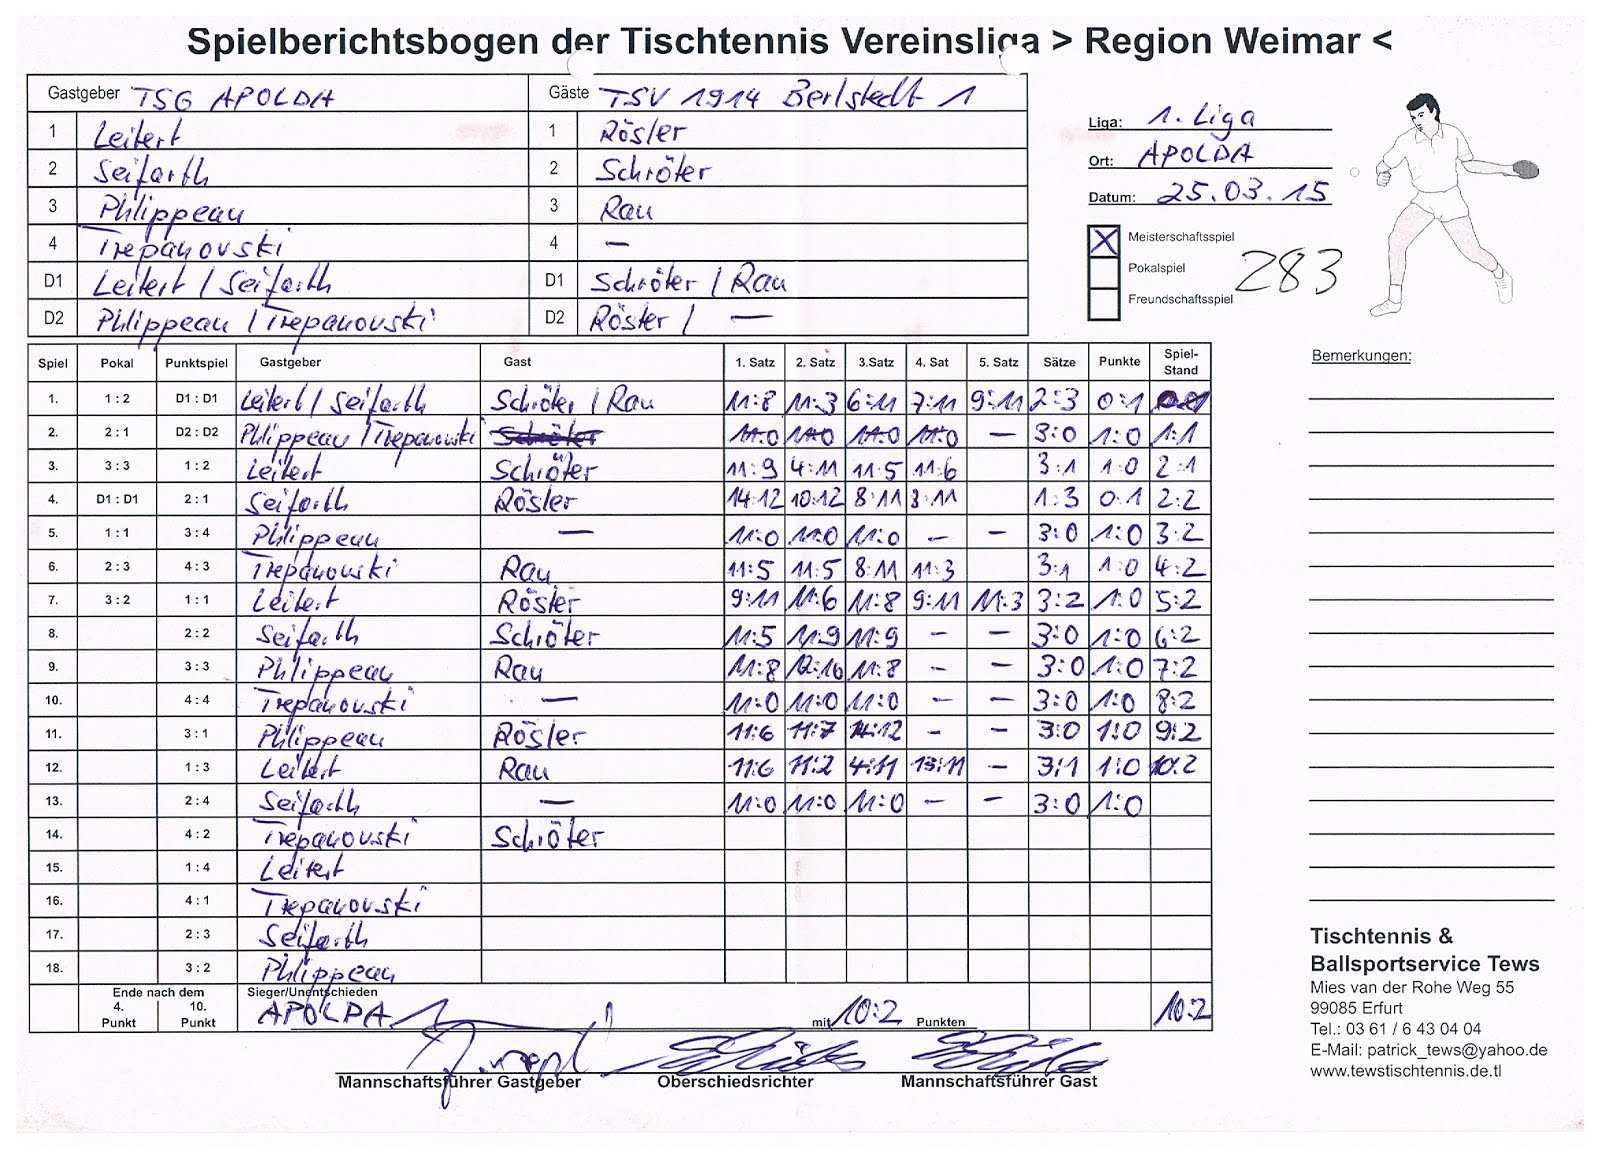 Spielberichtsbogen der Tischtennis Vereinsliga > Region Weimar <
Gastgeber TSG APOLDA Gäste TSV 1914 Berlstedt 1
1 Leitert 1 Rösler
2 Seifarth 2 Schröter
3 Phlippeau 3 Rau
4 Trepanovski 4 —
D1 Leitert / Seifarth D1 Schröter / Rau
D2 Phlippeau / Trepanovski D2 Rösler / —
Liga: 1. Liga
Ort: APOLDA
Datum: 25.03.15
X Meisterschaftsspiel
Pokalspiel 283
Freundschaftsspiel
Spiel Pokal Punktspiel Gastgeber Gast 1. Satz 2. Satz 3.Satz 4. Sat 5. Satz Sätze Punkte Spiel-Stand
1. 1 : 2 D1 : D1 Leitert / Seifarth Schröter / Rau 11:8 11:3 6:11 7:11 9:11 2:3 0:1
2. 2 : 1 D2 : D2 Phlippeau / Trepanowski Schröter 11:0 11:0 11:0 11:0 — 3:0 1:0 1:1
3. 3 : 3 1 : 2 Leitert Schröter 11:9 4:11 11:5 11:6 3:1 1:0 2:1
4. D1 : D1 2 : 1 Seifarth Rösler 14:12 10:12 8:11 8:11 1:3 0:1 2:2
5. 1 : 1 3 : 4 Phlippeau — 11:0 11:0 11:0 — — 3:0 1:0 3:2
6. 2 : 3 4 : 3 Trepanovski Rau 11:5 11:5 8:11 11:3 3:1 1:0 4:2
7. 3 : 2 1 : 1 Leitert Rösler 9:11 11:6 11:8 9:11 11:3 3:2 1:0 5:2
8. 2 : 2 Seifarth Schröter 11:5 11:9 11:9 — — 3:0 1:0 6:2
9. 3 : 3 Phlippeau Rau 11:8 12:10 11:8 — — 3:0 1:0 7:2
10. 4 : 4 Trepanovski — 11:0 11:0 11:0 — — 3:0 1:0 8:2
11. 3 : 1 Phlippeau Rösler 11:6 11:7 14:12 — — 3:0 1:0 9:2
12. 1 : 3 Leitert Rau 11:6 11:2 4:11 13:11 — 3:1 1:0 10:2
13. 2 : 4 Seifarth — 11:0 11:0 11:0 — — 3:0 1:0
14. 4 : 2 Trepanovski Schröter
15. 1 : 4 Leitert
16. 4 : 1 Trepanovski
17. 2 : 3 Seifarth
18. 3 : 2 Phlippeau
Ende nach dem
4. Punkt 10. Punkt
Sieger/Unentschieden
APOLDA 1 mit 10:2 Punkten 10:2
Mannschaftsführer Gastgeber Oberschiedsrichter Mannschaftsführer Gast
Bemerkungen:
Tischtennis &
Ballsportservice Tews
Mies van der Rohe Weg 55
99085 Erfurt
Tel.: 03 61 / 6 43 04 04
E-Mail: patrick_tews@yahoo.de
www.tewstischtennis.de.tl